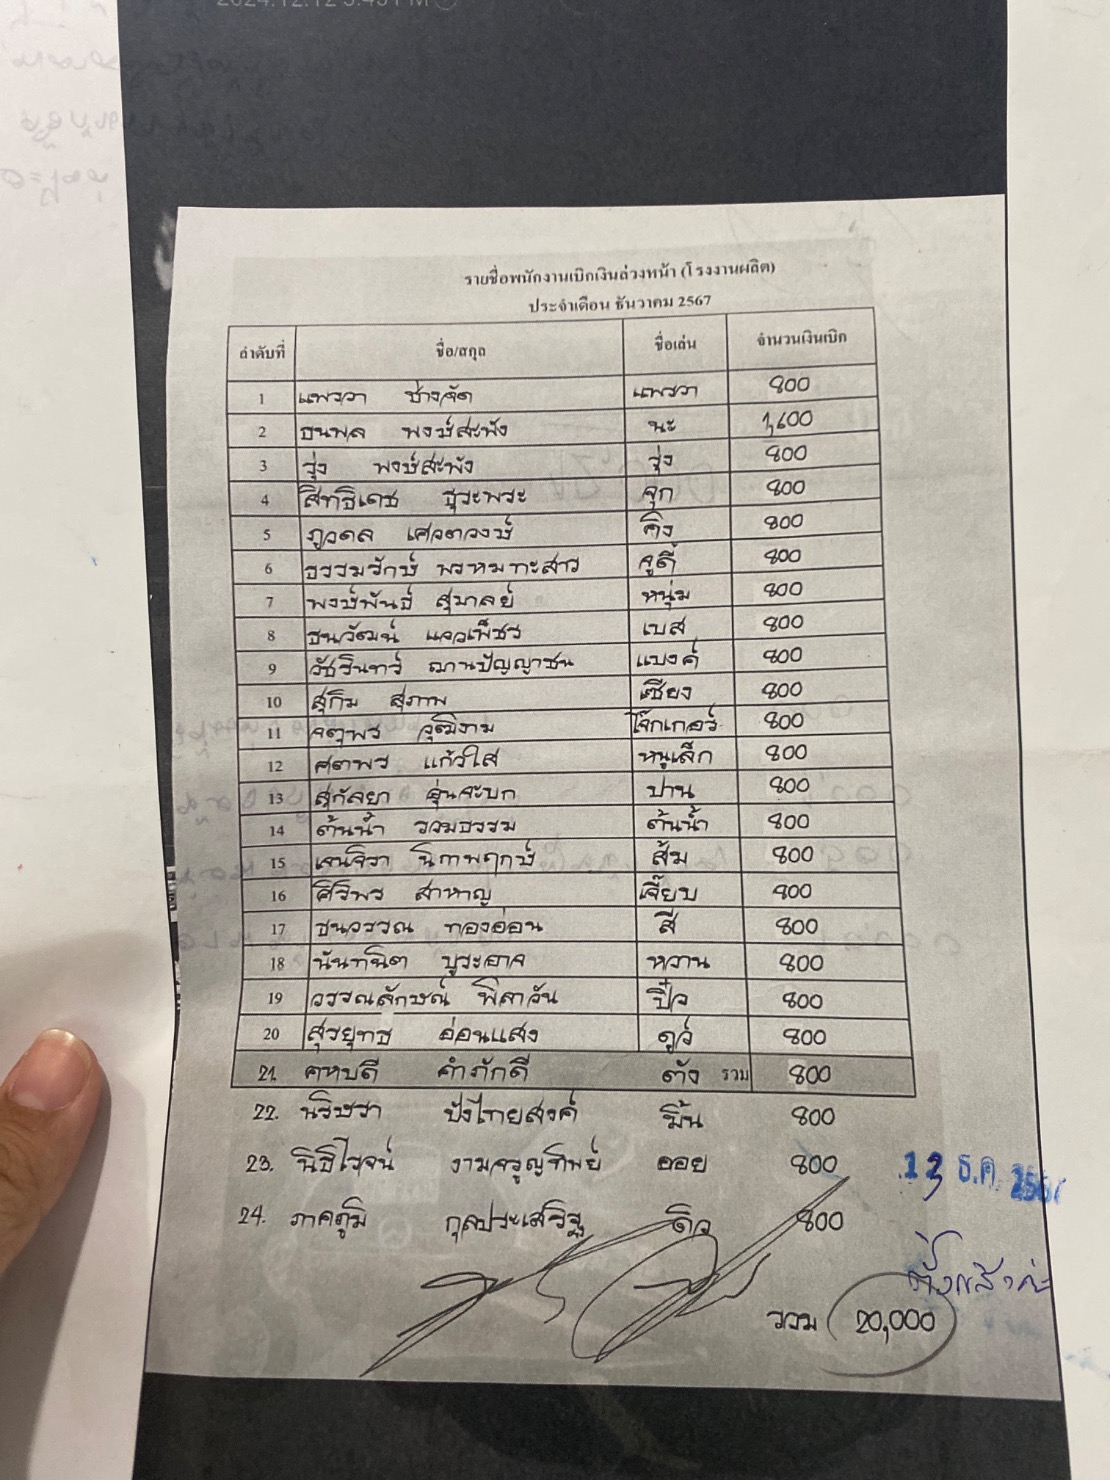 รายชื่อพนักงานเบิกเงินล่วงหน้า (โรงงานผลิต)
ประจำเดือน ธันวาคม 2567
ลำดับที่ ชื่อ/สกุล ชื่อเล่น จำนวนเงินเบิก
1 แพรวา ช่างจัด แพรวา 800
2 ธนพล พงษ์สะพัง นะ 1,600
3 รุ่ง พงษ์สะพัง รุ่ง 800
4 สิทธิเดช ธุระพระ จุก 800
5 ภูวดล เศวตวงษ์ คิง 800
6 ธรรมรักษ์ พรหมทะสาร จูดี้ 800
7 พงษ์พันธ์ สุมาลย์ หนุ่ม 800
8 ธนวัฒน์ แววเพ็ชร เบส 800
9 วัชรินทร์ ฌานปัญญาชน แบงค์ 800
10 สุกิม สุภาพ เซียง 800
11 จตุพร วุฒิงาม โจ๊กเกอร์ 800
12 ศตพร แก้วใส หนูเล็ก 800
13 สุกัลยา ปาน 800
14 ต้นน้ำ รวมธรรม ต้นน้ำ 800
15 เจนจิรา นิภาพฤกษ์ ส้ม 800
16 ศิริพร สาหาญ เจี๊ยบ 800
17 ธนวรรณ ทองอ่อน สี 800
18 นันทนิต บูระอาจ หวาน 800
19 วรรณลักษณ์ พิลาวัน ปิ๋ว 800
20 สุรยุทธ อ่อนแสง ดูร์ 800
21. คหบดี คำภักดี ตัง รวม 800
22. นริษรา ปังไทยสงค์ มิ้น 800
23. นิธิโรจน์ งามจรูญทิพย์ ออย 800
13 ธ.ค. 256
24. ภาคภูมิ กุลประเสริฐ ดิว 800
ตั้งแล้วค่ะ
รวม 20,000